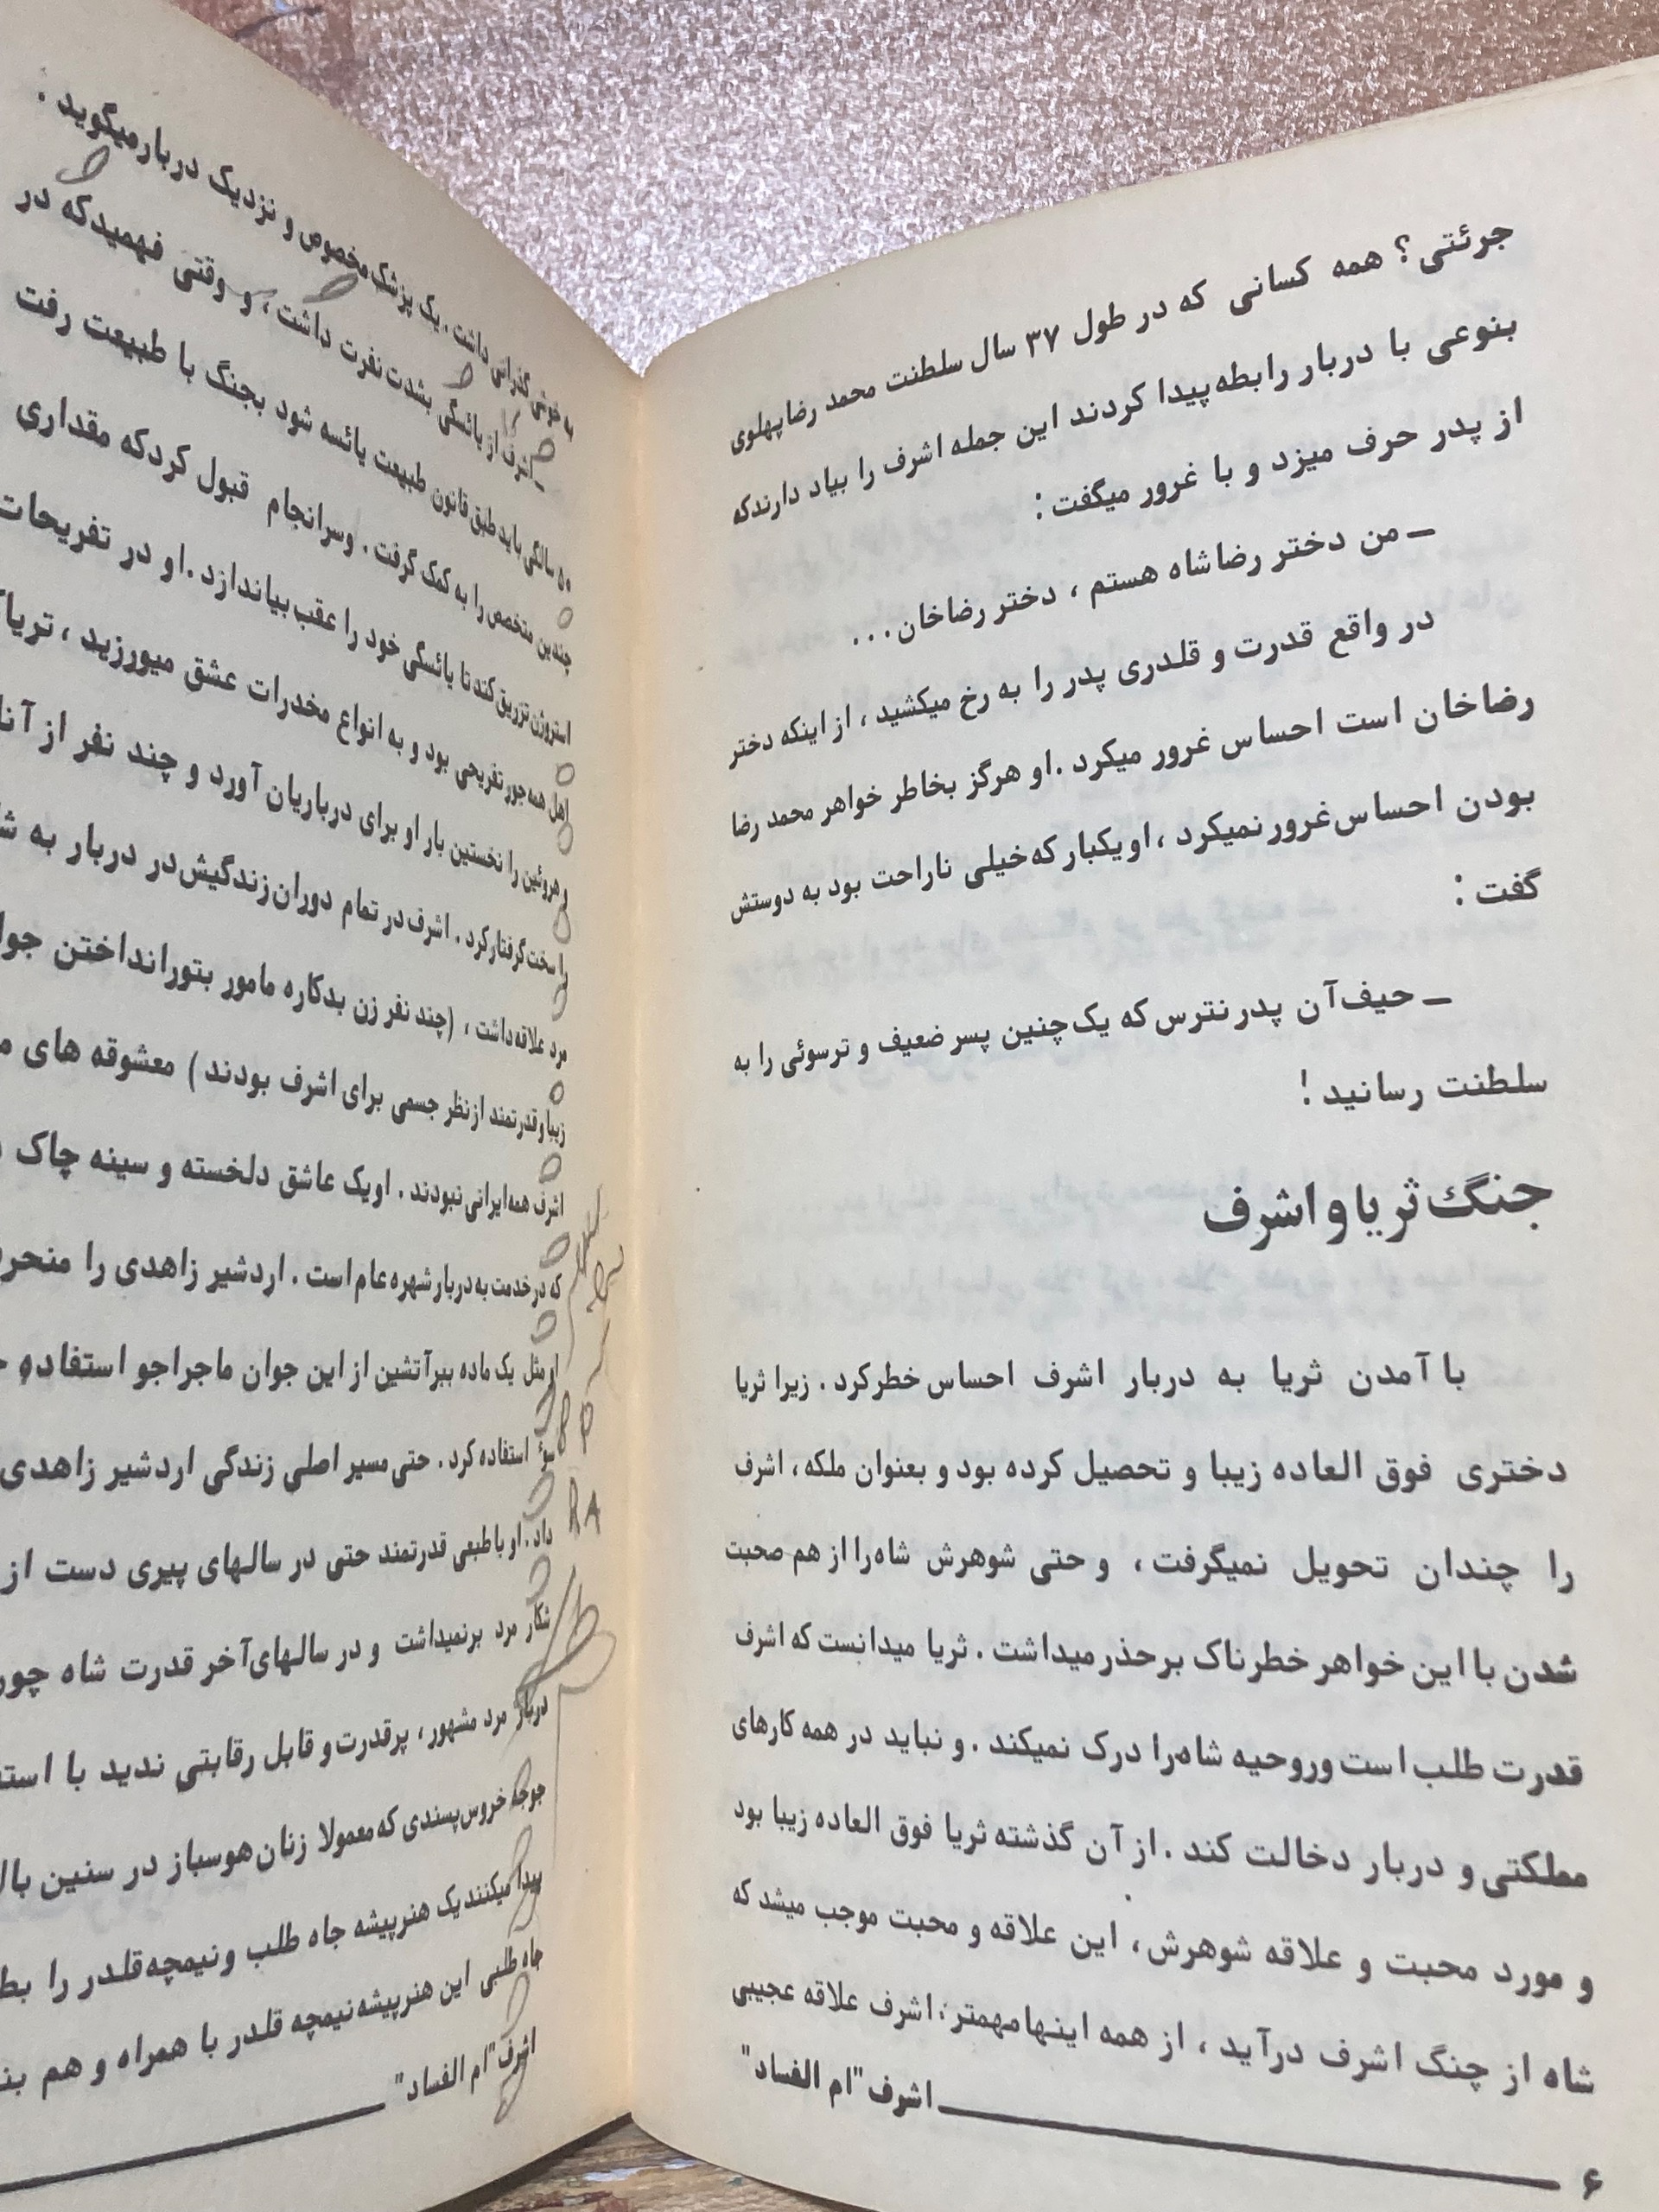 جرئتی؟ همه کسانی که در طول ۳۷ سال سلطنت محمد رضاپهلوی
بنوعی با دربار رابطه پیدا کردند این جمله اشرف را بیاد دارندکه
از پدر حرف میزد و با غرور میگفت:
ـ من دختر رضاشاه هستم، دختر رضاخان...
در واقع قدرت و قلدری پدر را به رخ میکشید، از اینکه دختر
رضاخان است احساس غرور میکرد. او هرگز بخاطر خواهر محمد رضا
بودن احساس غرور نمیکرد، او یکبار که خیلی ناراحت بود به دوستش
گفت:
ـ حیف آن پدر نترس که یک چنین پسر ضعیف و ترسوئی را به
سلطنت رسانید!
جنگ ثریا و اشرف
با آمدن ثریا به دربار اشرف احساس خطر کرد. زیرا ثریا
دختری فوق العاده زیبا و تحصیل کرده بود و بعنوان ملکه، اشرف
را چندان تحویل نمیگرفت، و حتی شوهرش شاه را از هم صحبت
شدن با این خواهر خطرناک برحذر میداشت. ثریا میدانست که اشرف
قدرت طلب است وروحیه شاه را درک نمیکند. و نباید در همه کارهای
مملکتی و دربار دخالت کند. از آن گذشته ثریا فوق العاده زیبا بود
و مورد محبت و علاقه شوهرش، این علاقه و محبت موجب میشد که
شاه از چنگ اشرف درآید، از همه اینها مهمتر، اشرف علاقه عجیبی
اشرف "ام الفساد"
۶
به خوش گذرانی داشت. یک پزشک مخصوص و نزدیک دربار میگوید.
ـ اشرف از یائسگی بشدت نفرت داشت، و وقتی فهمیدکه در
۵۰ سالگی باید طبق قانون طبیعت یائسه شود بجنگ با طبیعت رفت
چندین متخصص را به کمک گرفت. وسرانجام قبول کردکه مقداری
استروژن تزریق کند تا یائسگی خود را عقب بیاندازد. او در تفریحات
اهل همه جور تفریحی بود و به انواع مخدرات عشق میورزید،
و هروئین را نخستین بار او برای درباریان آورد و چند نفر از
را سخت گرفتار کرد. اشرف در تمام دوران زندگیش در دربار به
مرد علاقه داشت، (چند نفر زن بدکاره مامور بتور انداختن
زیبا و قدرتمند از نظر جسمی برای اشرف بودند) معشوقه های
اشرف همه ایرانی نبودند. او یک عاشق دلخسته و سینه چاک
که در خدمت به دربار شهره عام است. اردشیر زاهدی را
او مثل یک ماده ببر آتشین از این جوان ماجراجو استفاده و
سوء استفاده کرد. حتی مسیر اصلی زندگی اردشیر زاهدی
داد. او با طبعی قدرتمند حتی در سالهای پیری دست از
شکار مرد برنمیداشت و در سالهای آخر قدرت شاه
دربار مرد مشهور، پرقدرت و قابل رقابتی ندید با
جوجه خروس پسندی که معمولا زنان هوسباز در سنین
پیدا میکنند یک هنرپیشه جاه طلب و نیمچه قلدر را
جاه طلبی این هنرپیشه نیمچه قلدر با همراه و هم
اشرف "ام الفساد"